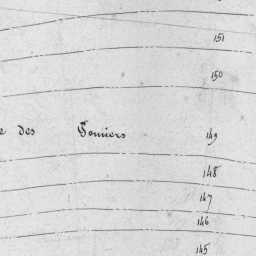 151
150
e des Pomiers 149
148
147
146
145